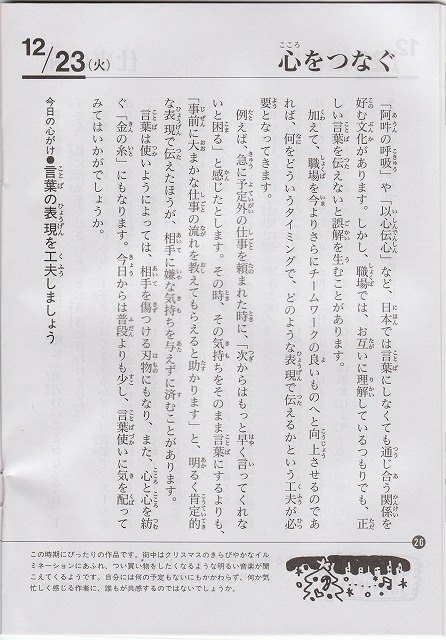 12/23(火)
心をつなぐ
「阿吽の呼吸」や「以心伝心」など、日本では言葉にしなくても通じ合う関係を
好む文化があります。しかし、職場では、お互いに理解しているつもりでも、正
しい言葉を伝えないと誤解を生むことがあります。
加えて、職場を今よりさらにチームワークの良いものへと向上させるのであ
れば、何をどういうタイミングで、どのような表現で伝えるかという工夫が必
要となってきます。
例えば、急に予定外の仕事を頼まれた時に、「次からはもっと早く言ってくれな
いと困る」と感じたとします。その時、その気持ちをそのまま言葉にするよりも、
「事前に大まかな仕事の流れを教えてもらえると助かります」と、明るく肯定的
な表現で伝えたほうが、相手に嫌な気持ちを与えずに済むことがあります。
言葉は使いようによっては、相手を傷つける刃物にもなり、また、心と心を紡
ぐ「金の糸」にもなります。今日からは普段よりも少し、言葉遣いに気を配って
みてはいかがでしょうか。
今日の心がけ●言葉の表現を工夫しましょう
26
この時期にぴったりの作品です。街中はクリスマスのきらびやかなイル
ミネーションにあふれ、つい買い物をしたくなるような明るい音楽が聞
こえてくるようです。自分には何の予定もないにもかかわらず、何か気
忙しく感じる作者に、誰もが共感するのではないでしょうか。